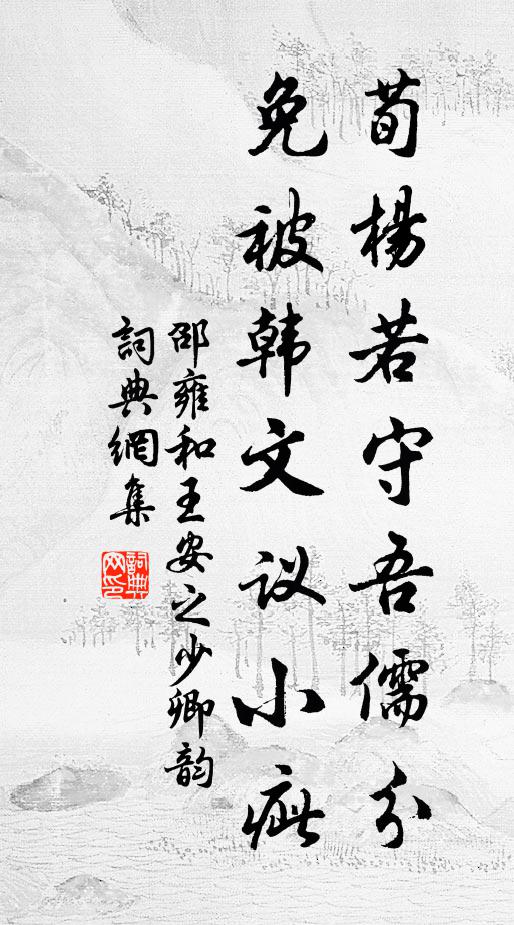 荀楊若守吾儒分
免被韩文议小疵
邵雍和王安之少卿韵
詞典網集
詞典
网印